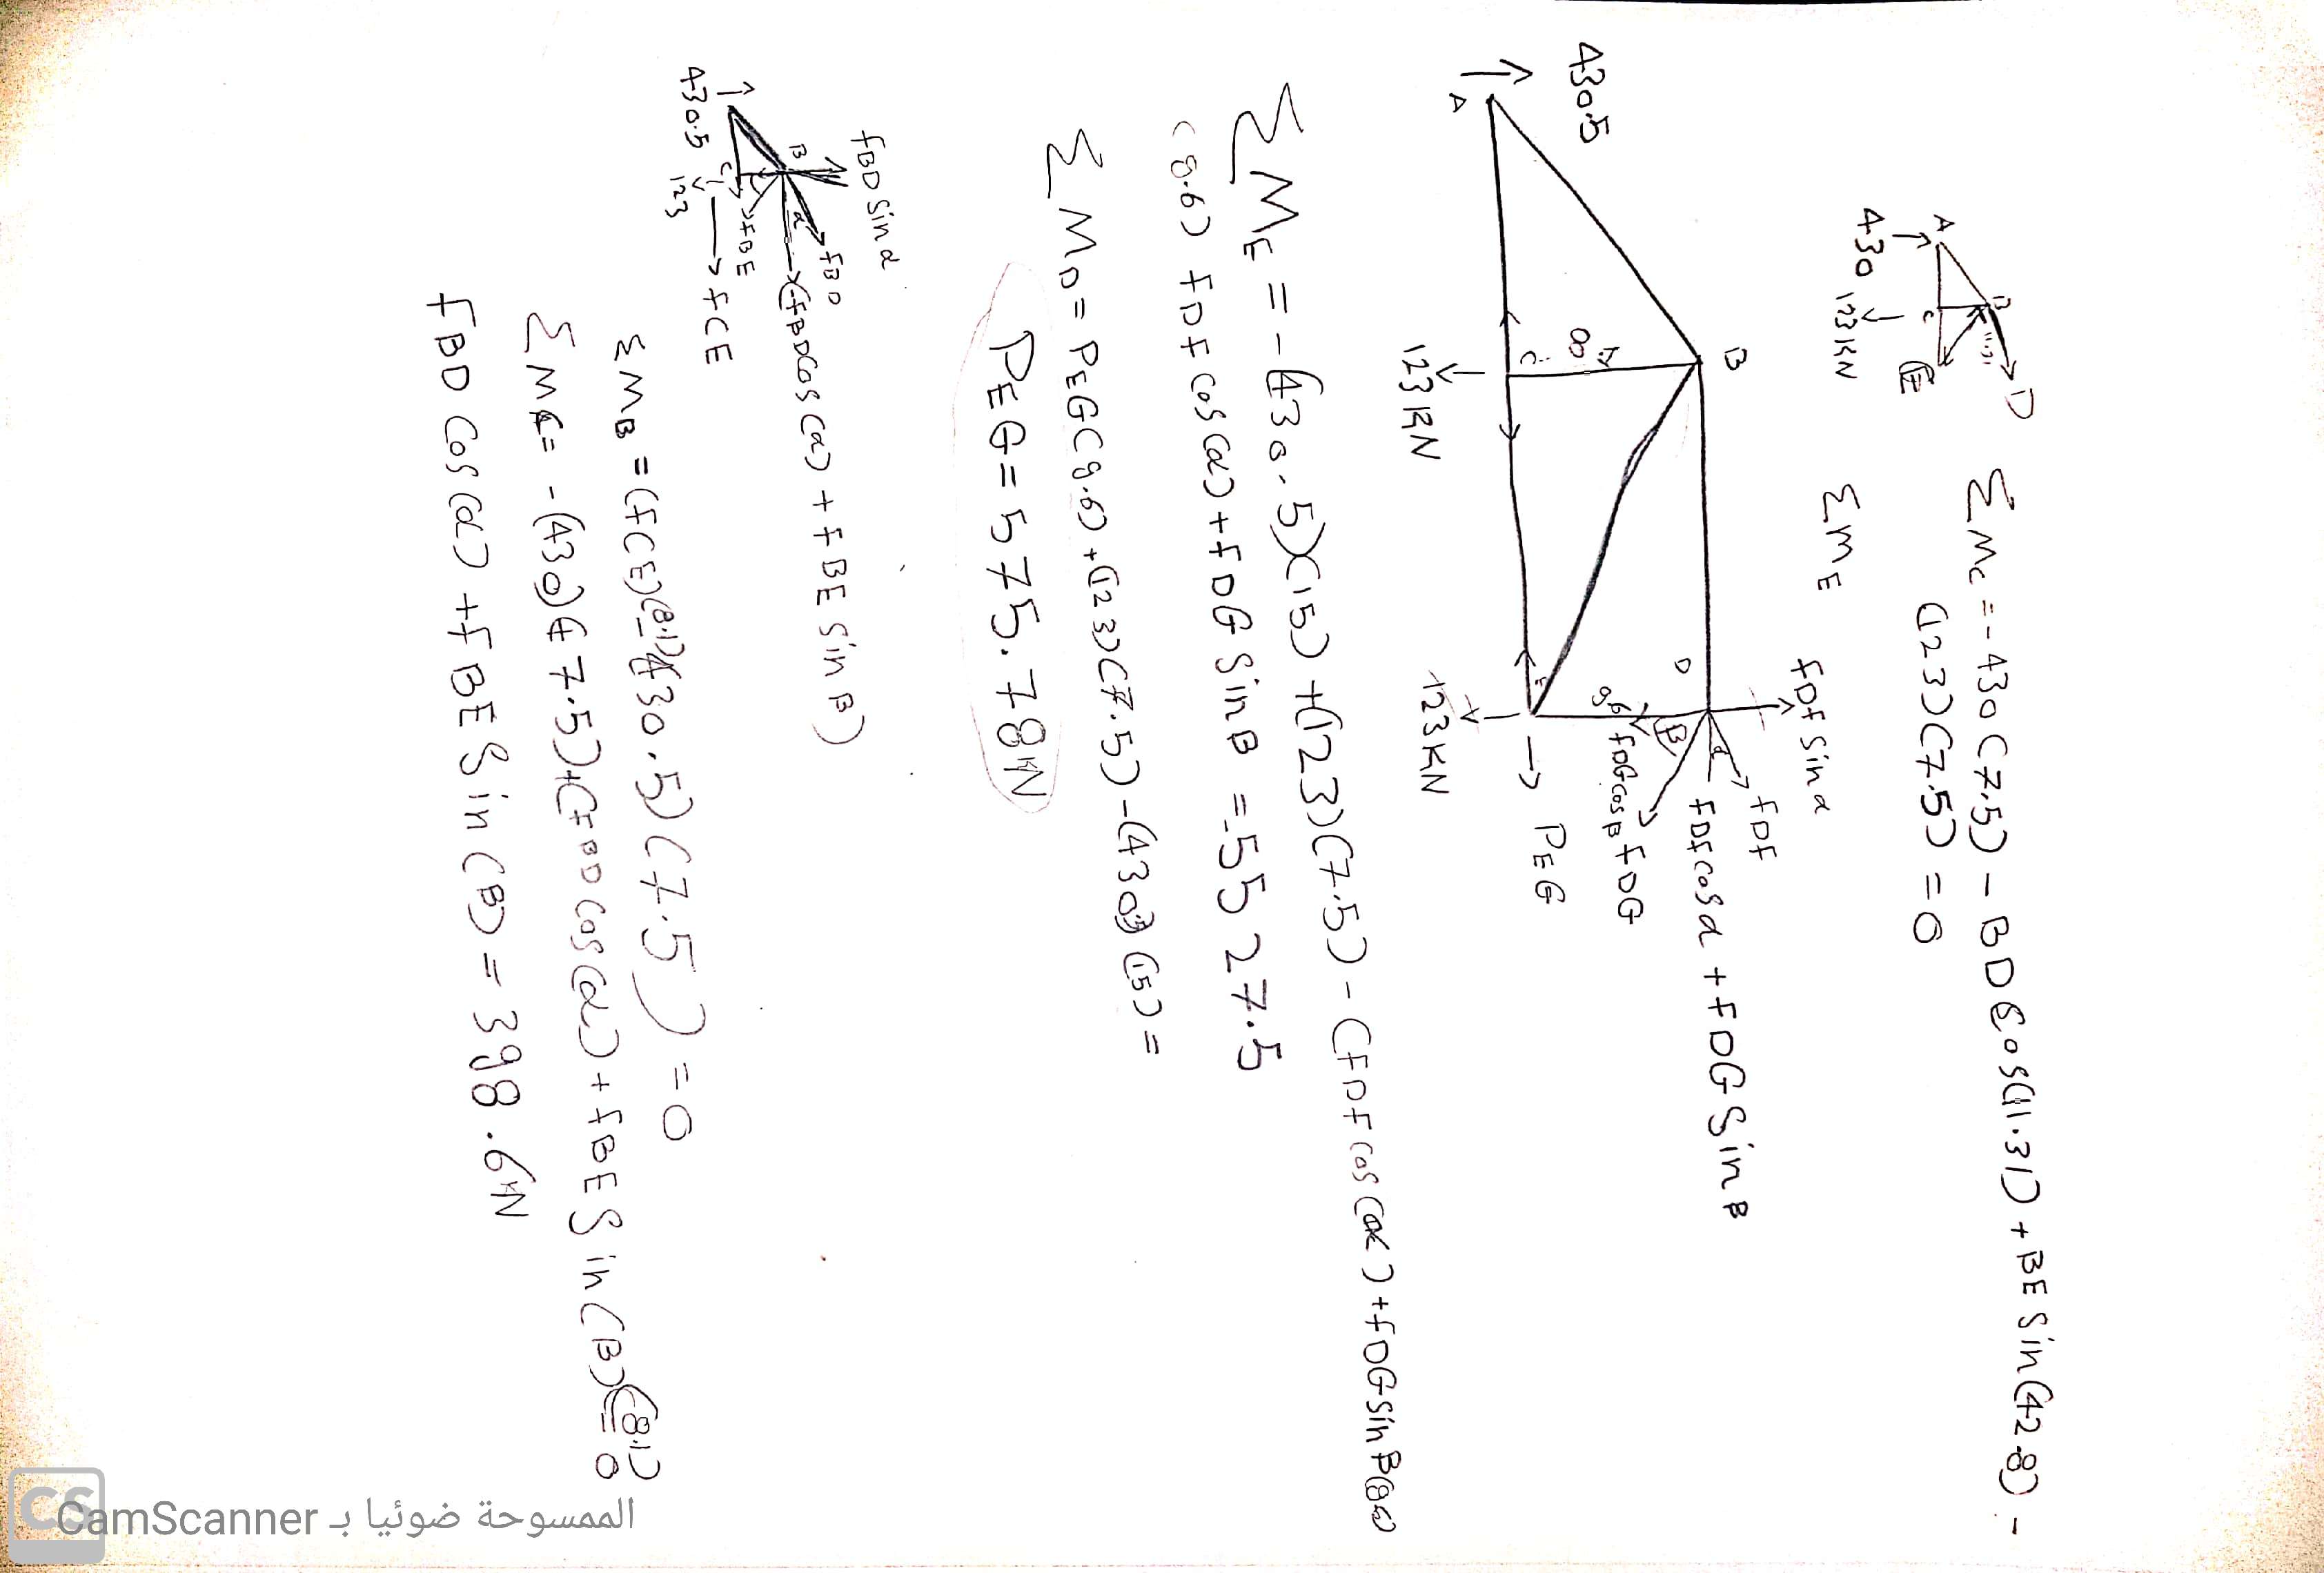 ΣMc = -430(7.5) - BD cos(11.31) + BE Sin(42.8) -
(123)(7.5) = 0
A
B
D
C
E
11.31
430
123KN
ΣME
430.5
A
B
C
D
E
8.6
123KN
123KN
FDF Sin α
FDF
FDF cos α + FDG Sin B
FDG cos B
FDG
B
→ PEG
ΣME = -(430.5)(15) + (123)(7.5) - (FDF cos(α) + FDG Sin B
(8.6) FDF cos(α) + FDG Sin B = 5527.5
ΣMD = PEG(8.6) + (123)(7.5) - (430)(15) =
PEG = 575.78 KN
FBD Sin α
FBD
B
α
(FBD cos(α) + FBE Sin B)
FBE
C
→ FCE
430.5
123
ΣMB = (FCE)(8.1) - (430.5)(7.5) = 0
ΣMC = -(430)(7.5) + (FBD cos(α) + FBE Sin(B)(8.1) = 0
FBD Cos(α) + FBE Sin(B) = 398.6 KN
الممسوحة ضوئيا بـ CamScanner
CS